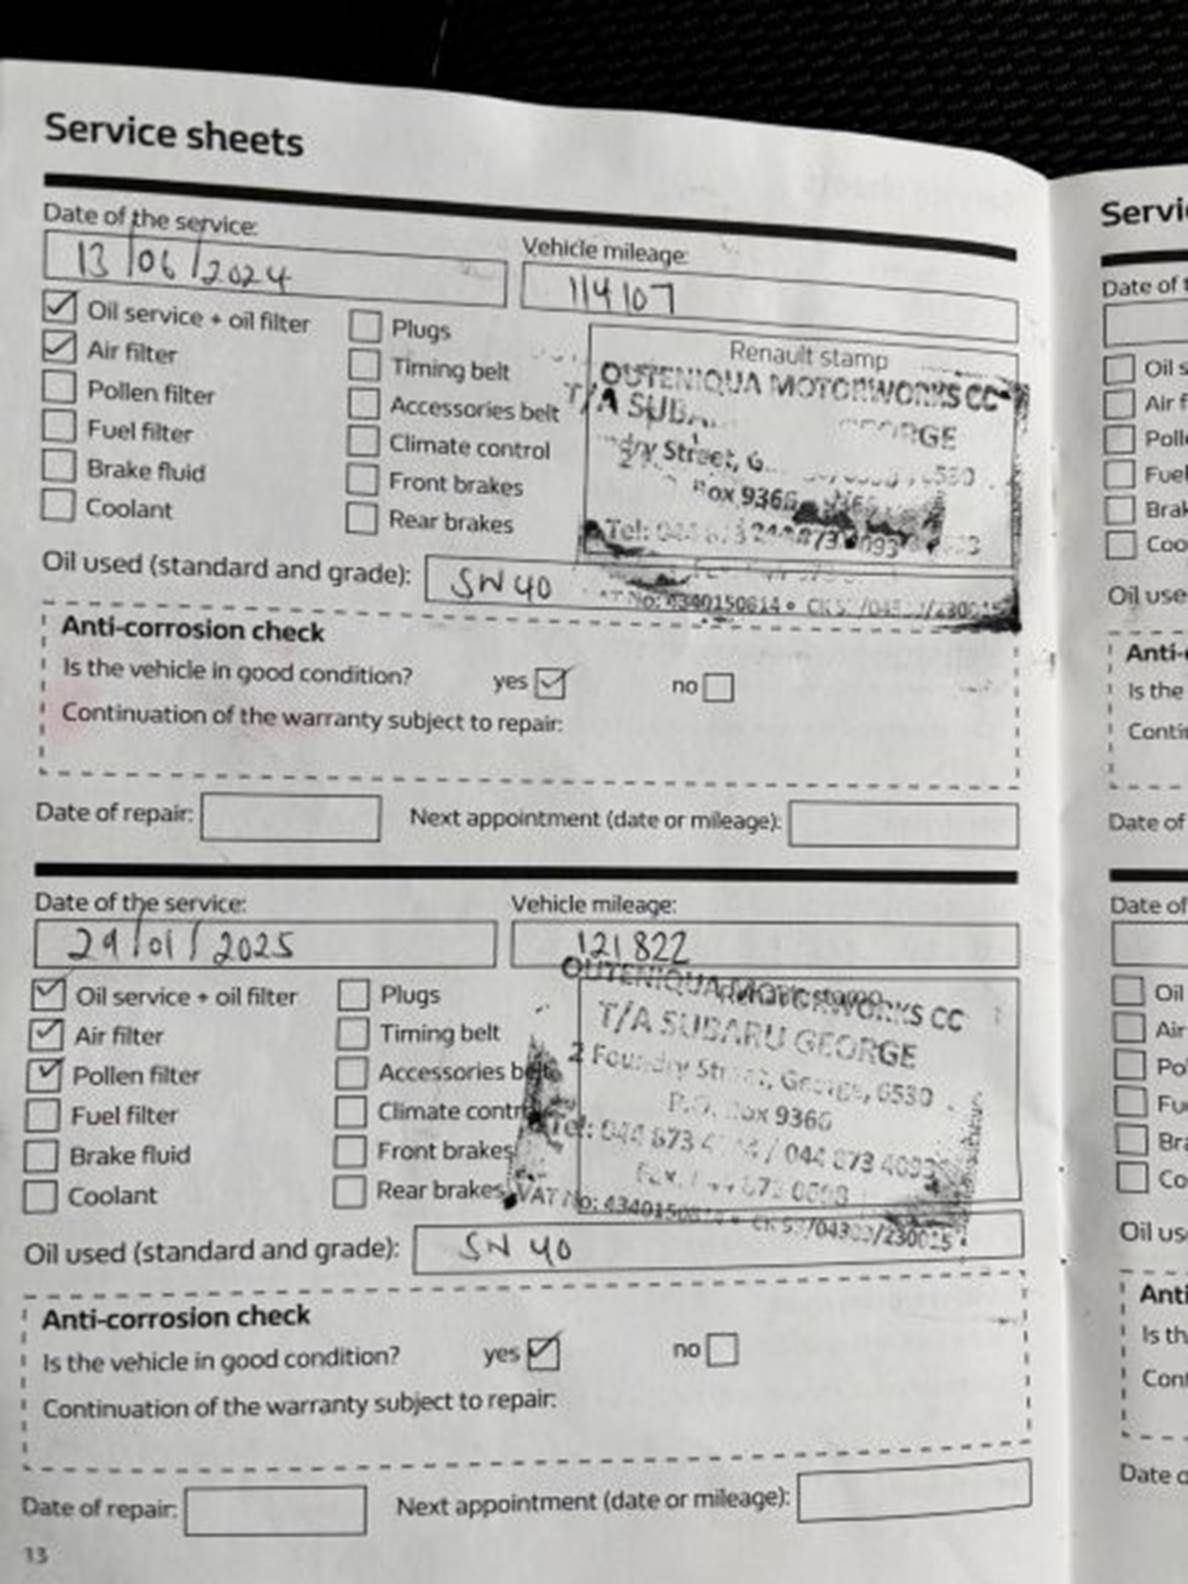 Service sheets
Date of the service:
13/06/2024
Vehicle mileage:
114107
Oil service + oil filter
Air filter
Pollen filter
Fuel filter
Brake fluid
Coolant
Plugs
Timing belt
Accessories belt
Climate control
Front brakes
Rear brakes
Renault stamp
OUTENIQUA MOTORWORKS CC
T/A SUBA GEORGE
Street, G
Box 9366
Tel: 044 873
Oil used (standard and grade):
SN 40
VAT No: 4340150614 • CK
Anti-corrosion check
Is the vehicle in good condition?
yes
no
Continuation of the warranty subject to repair:
Date of repair:
Next appointment (date or mileage):
Date of the service:
29/01/2025
Vehicle mileage:
121 822
Oil service + oil filter
Air filter
Pollen filter
Fuel filter
Brake fluid
Coolant
Plugs
Timing belt
Accessories belt
Climate contr
Front brakes
Rear brakes
OUTENIQUA MOTORWORKS CC
T/A SUBARU GEORGE
2 Foundry Street, George, 6530
P.O. Box 9366
Tel: 044 873 / 044 873 4093
Fax: 044 873
VAT No: 4340150614 • CK
Oil used (standard and grade):
SN 40
Anti-corrosion check
Is the vehicle in good condition?
yes
no
Continuation of the warranty subject to repair:
Date of repair:
Next appointment (date or mileage):
13
Servi
Date of t
Oil s
Air f
Polle
Fuel
Brak
Coo
Oil use
Anti-
Is the
Contin
Date of
Date of
Oil
Air
Po
Fu
Bra
Co
Oil us
Anti
Is th
Cont
Date o